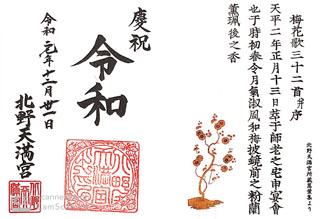 梅花歌三十二首并序
天平二年正月十三日萃于師老之宅申宴會
也于時初春令月氣淑風和梅披鏡前之粉蘭
薫珮後之香
北野天満宮所蔵萬葉集より
慶祝
令和
令和元年十二月廿一日
北野天満宮